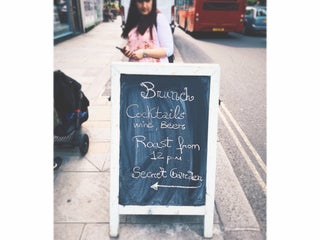 Brunch
Cocktails
wine, Beers
Roast from
12 pm
Secret Garden